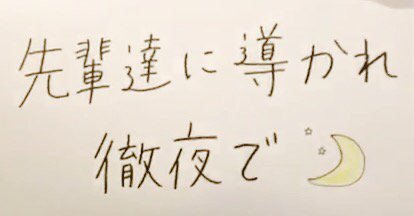 先輩達に導かれ
徹夜で